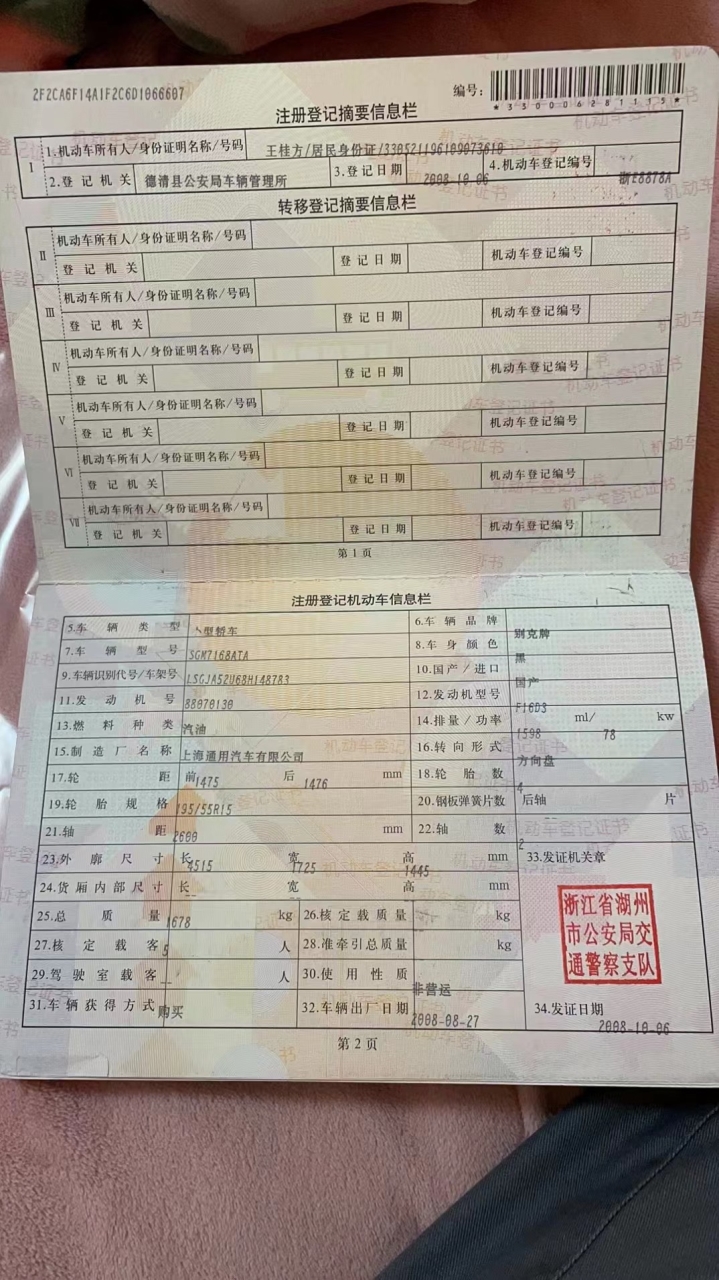 2F2CA6F14A1F2C6D1066607 编号:
*330006281115*
注册登记摘要信息栏
I 1.机动车所有人/身份证明名称/号码 王桂方/居民身份证/330521196109073610
2.登记机关 德清县公安局车辆管理所 3.登记日期 2008-10-06 4.机动车登记编号 浙E8878A
转移登记摘要信息栏
II 机动车所有人/身份证明名称/号码
登记机关 登记日期 机动车登记编号
III 机动车所有人/身份证明名称/号码
登记机关 登记日期 机动车登记编号
IV 机动车所有人/身份证明名称/号码
登记机关 登记日期 机动车登记编号
V 机动车所有人/身份证明名称/号码
登记机关 登记日期 机动车登记编号
VI 机动车所有人/身份证明名称/号码
登记机关 登记日期 机动车登记编号
VII 机动车所有人/身份证明名称/号码
登记机关 登记日期 机动车登记编号
第1页
注册登记机动车信息栏
5.车辆类型 型轿车 6.车辆品牌 别克牌
7.车辆型号 SGM7168ATA 8.车身颜色 黑
9.车辆识别代号/车架号 LSGJA52U68H148783 10.国产/进口 国产
11.发动机号 88070130 12.发动机型号 F16D3
13.燃料种类 汽油 14.排量/功率 1598 ml/ 78 kw
15.制造厂名称 上海通用汽车有限公司 16.转向形式 方向盘
17.轮距 前1475 后1476 mm 18.轮胎数 4
19.轮胎规格 195/55R15 20.钢板弹簧片数 后轴 -- 片
21.轴距 2600 mm 22.轴数 2
23.外廓尺寸 长4515 宽1725 高1445 mm 33.发证机关章
24.货厢内部尺寸 长-- 宽-- 高-- mm
25.总质量 1678 kg 26.核定载质量 -- kg
27.核定载客 5 人 28.准牵引总质量 -- kg
29.驾驶室载客 -- 人 30.使用性质 非营运
31.车辆获得方式 购买 32.车辆出厂日期 2008-08-27 34.发证日期 2008-10-06
浙江省湖州
市公安局交
通警察支队
第2页